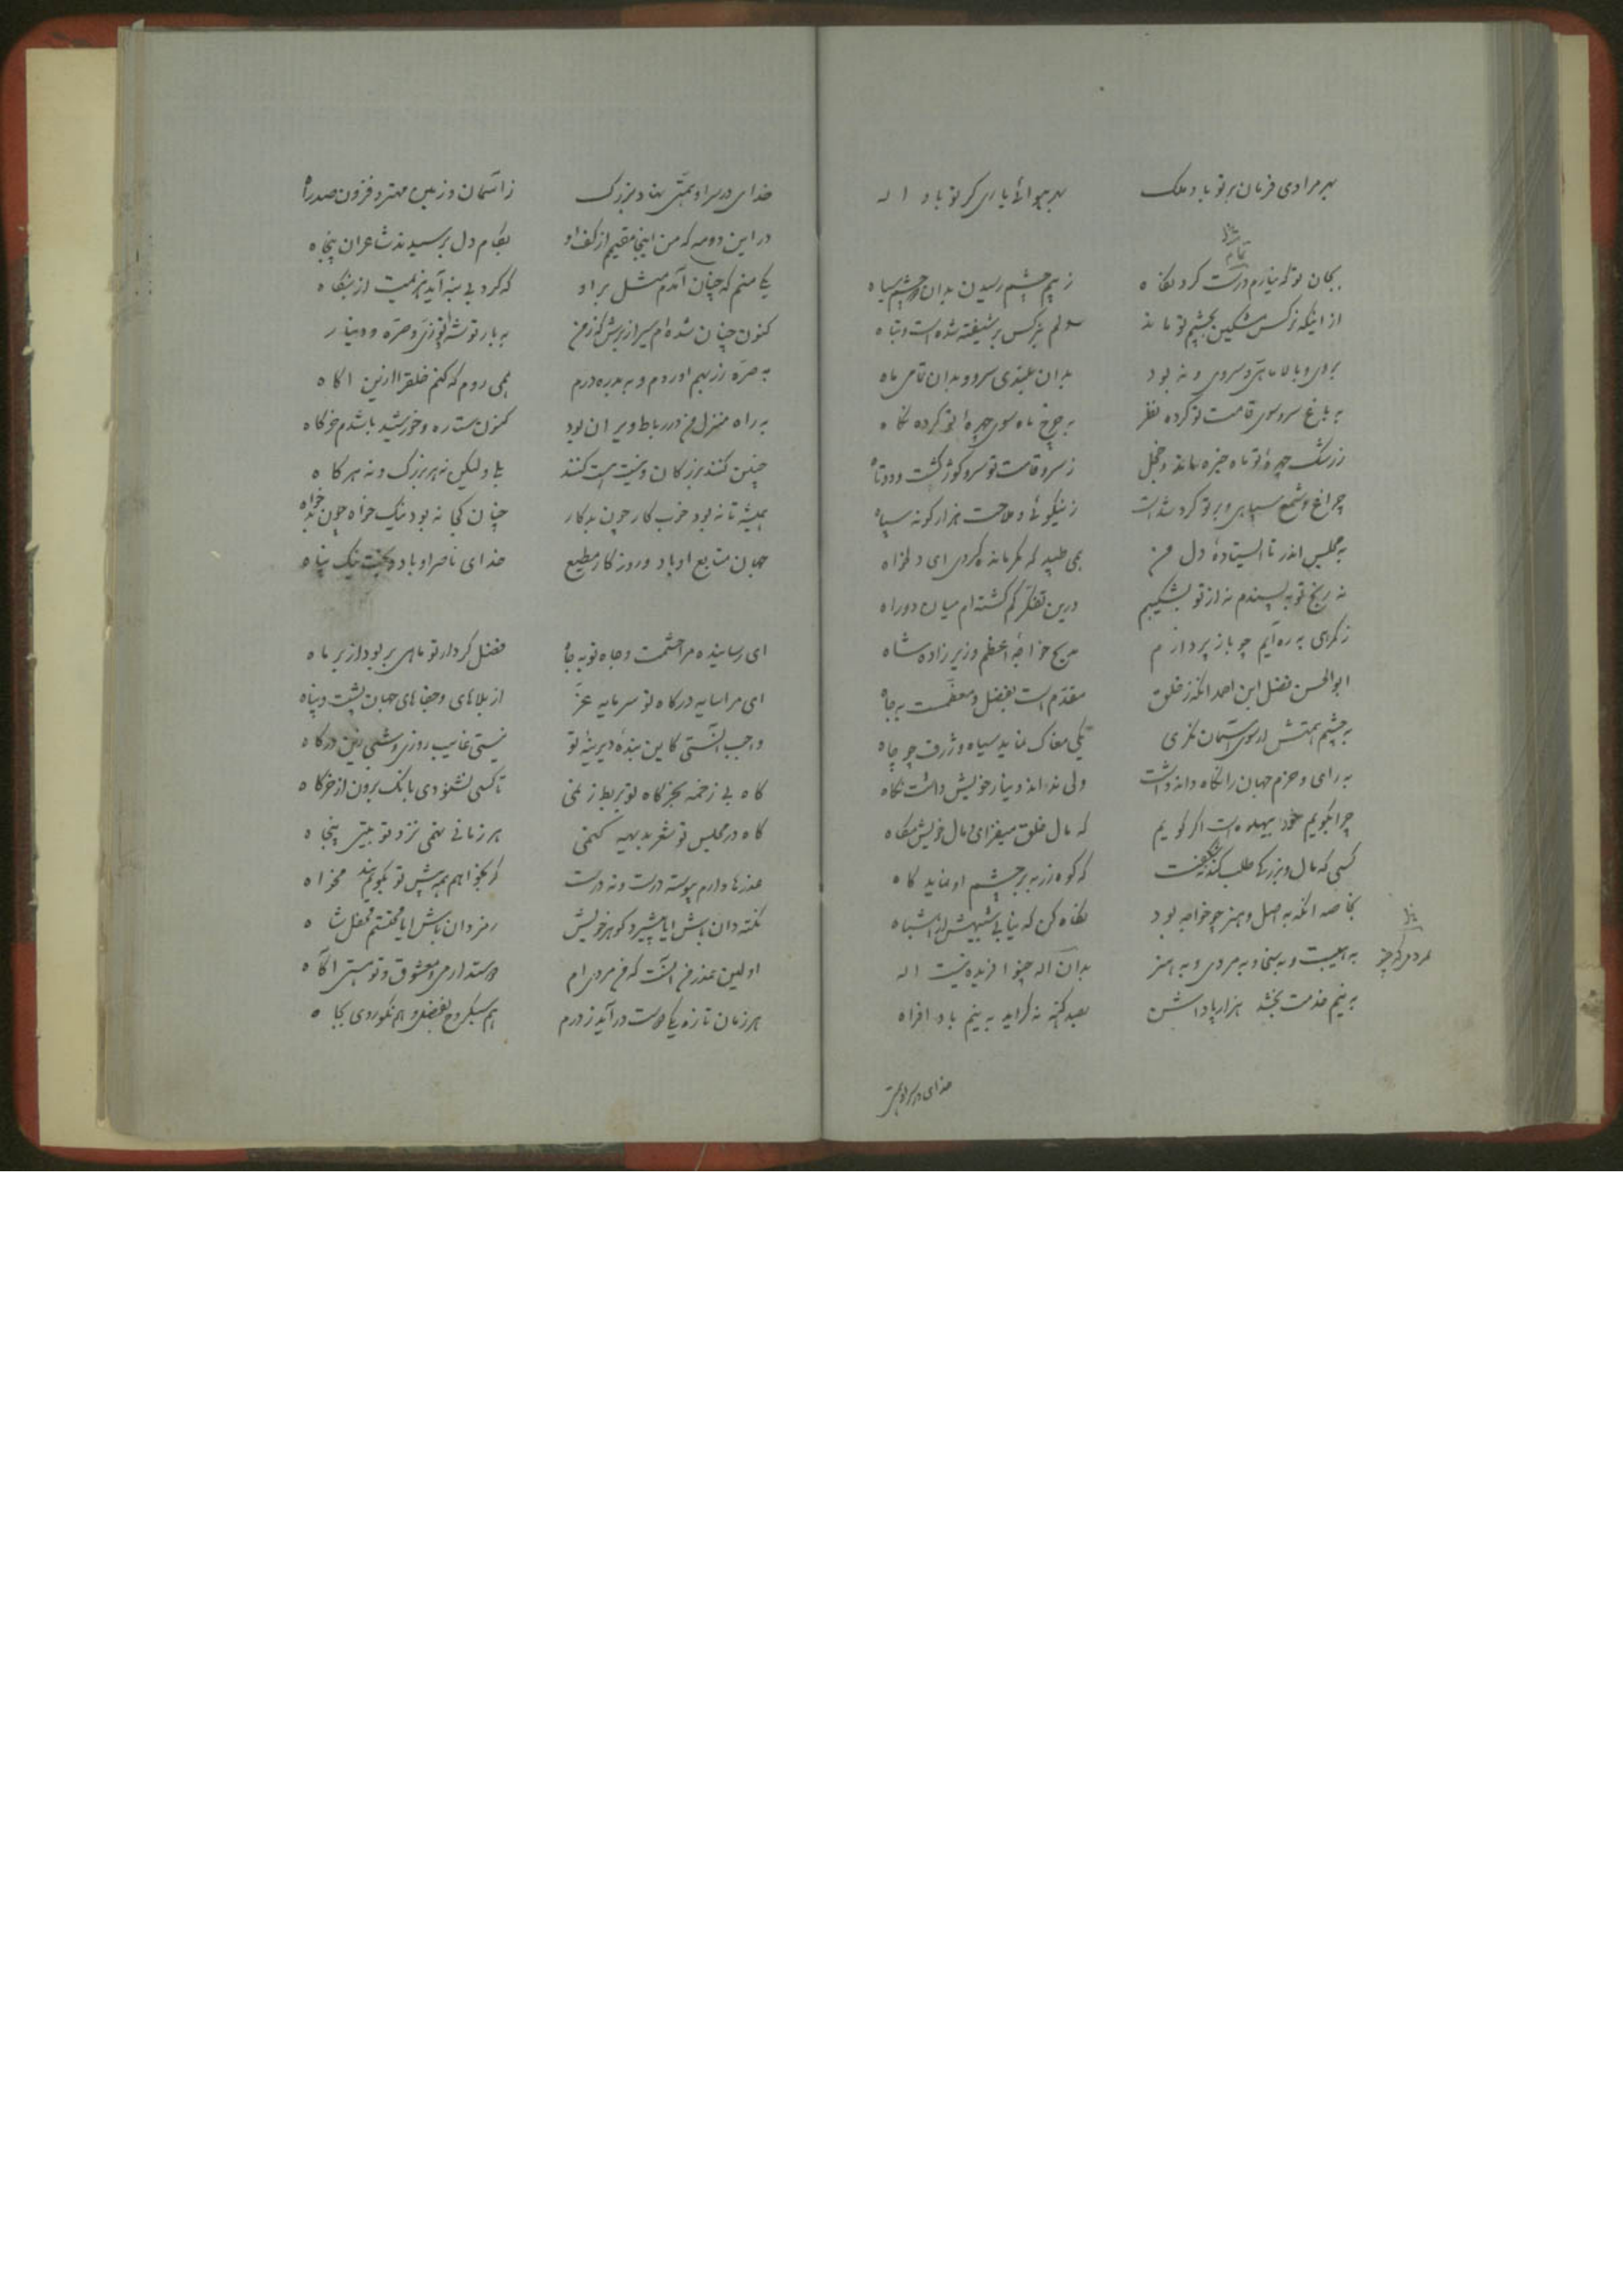 بهر مرادی فرمان بر تو باد ملک بهر هوائی یاری گر تو باد اله
تمام
بجان تو که نیارم درست کرد نگاه ز بیم چشم رسیدن بدان دو چشم سیاه
از اینکه نرکس مشکین بچشم تو ماند دلم بنرکس بر شیفته شده است و تباه
بروی و بالا ماهی و سروی و نه بود بدان بلندی سرو و بدان تمامی ماه
به باغ سرو سوی قامت تو کرده نظر به چرخ ماه سوی چهرهٔ تو کرده نگاه
ز رشک چهرهٔ تو ماه خیره ماند و خجل ز سرو قامت تو سرو کوژ گشت و دوتاه
چراغ و شمع سپاهی و بر تو کرد شدست ز نیکوئی و ملاحت هزار گونه سپاه
به مجلس اندر تا ایستادهٔ دل من همی طپید که مگر مانده گردی ای دلخواه
نه رنج تو به پسندم نه از تو بشکیبم درین تفکر گم گشته ام میان دو راه
ز گمرهی به ره آیم چو باز پردازم به مدح خواجهٔ اعظم وزیر زادهٔ شاه
ابوالحسن فضل ابن احمد انکه ز خلق مقدم است بفضل و معظمست به جاه
به چشم همتش ار سوی آسمان نگری یکی مغاک نماید سیاه و ژرف چو چاه
به رای و حزم جهان را نگاه داند داشت ولی نداند دینار خویش داشت نگاه
چرا نگویم خود بیهده است اگر گویم که مال خلق میفزای و مال خویش مکاه
کسی که مال و بزرگی طلب کند نه شگفت که کوه زر به بر چشم او نماید کاه
بخاصه انکه به اصل و هنر چو خواجه بود نگاه کن که نیابی شبیهش از اشباه
به هیبت و به سخا و به مردی و به هنر بدان اله چنو آفریده نیست اله
به نیم خدمت بخشد هزار پاداشن بصد گنه نه گراید به نیم باد افراه
خدای در سر او همتی
خدای در سر او همتی نهاد بزرگ ز آسمان و زمین مهتر و فزون صد راه
در این دو مه که من اینجا مقیم از کف او بکام دل برسیدند شاعران پنجاه
یکی منم که چنان آمدم مثل بر او که کرد بی بنه آید هزیمت از بنگاه
کنون چنان شده ام سیر از برش که ز من به بار توشه زر و صره و دینار
به صره زر بهم اوردم و به بدره درم همی روم که کنم خلق را ازین اگاه
به راه منزل من در رباط ویران بود کنون ستاره و خورشید باشدم خرگاه
چنین کنند بزرگان و نیست کنند بلی ولیکن نه هر بزرگ و نه هر گاه
همیشه تا نه بود خوب کار چون بدکار چنان کجا نه بود نیک خواه چون بدخواه
جهان متابع او باد و روزگار مطیع خدای ناصر او باد و بخت نیک پناه
ای رسانیده مرا حشمت و جاه تو به جاه فضل کردار تو ماهی بر بوداز بر ماه
ای مرا سایهٔ درگاه تو سرمایهٔ عز از بلاهای و جفاهای جهان پشت و پناه
واجب آنستی کاین بندهٔ دیرینهٔ تو نیستی غایب روزی و شبی زین درگاه
گاه بی زخمه بخرگاه تو بربط زنمی تا کسی نشنودی بانگ برون از خرگاه
گاه در مجلس تو شعر بدیهه کنمی هر زمانی نهمی نزد تو بیتی پنجاه
عذرها دارم پیوسته درست و نه درست گر بخواهم به پیش تو بگویم مخواه
نکته دان باش ایا مشیر گوهر خویش رمز دان باش ایا محتشم محفل شاه
اولین عذر من انست که من مردی ام دوستدار می و معشوق و تو هستی اگاه
هر زمان تازه یکی دوست در آید ز درم هم سبکروح بفضل و هم نکوروی بجاه